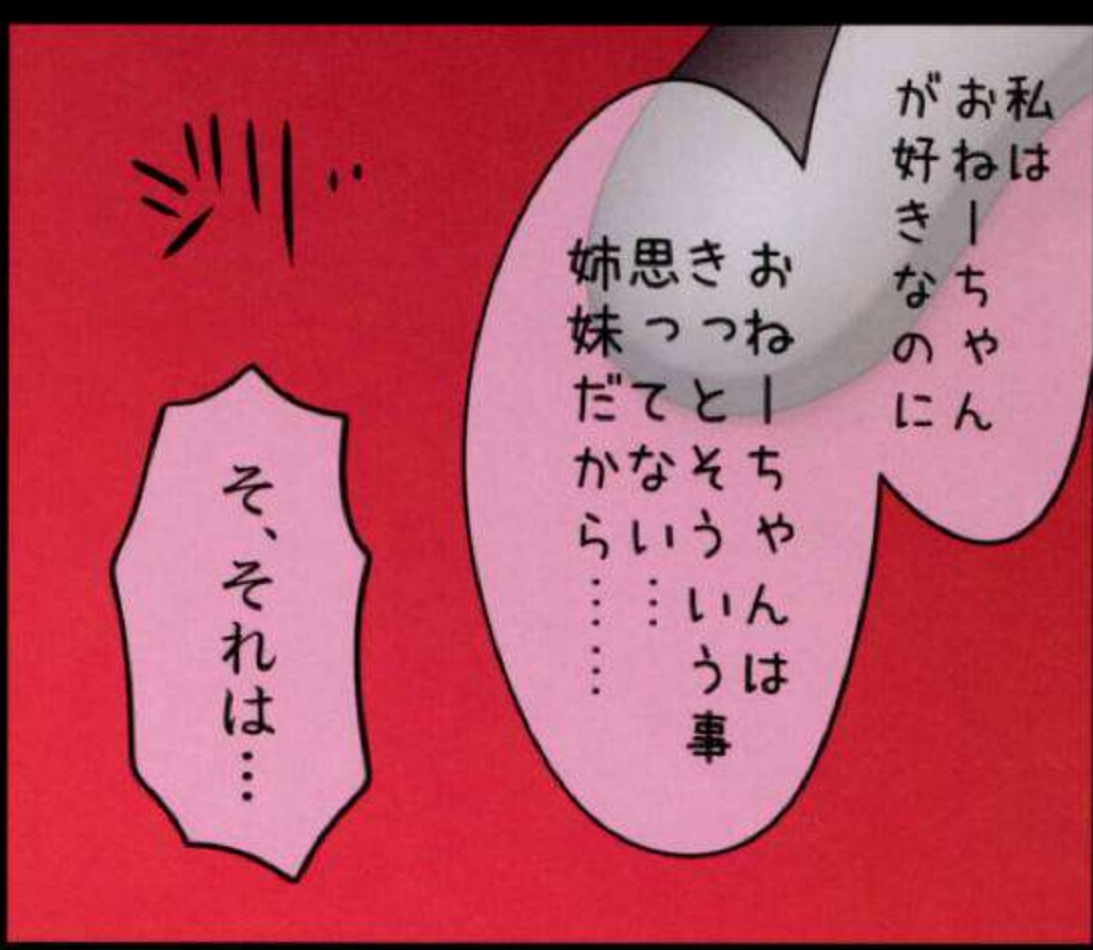 私は
おねーちゃん
が好きなのに
おねーちゃんは
きっとそういう事
思ってない…
姉妹だから……
そ、それは…